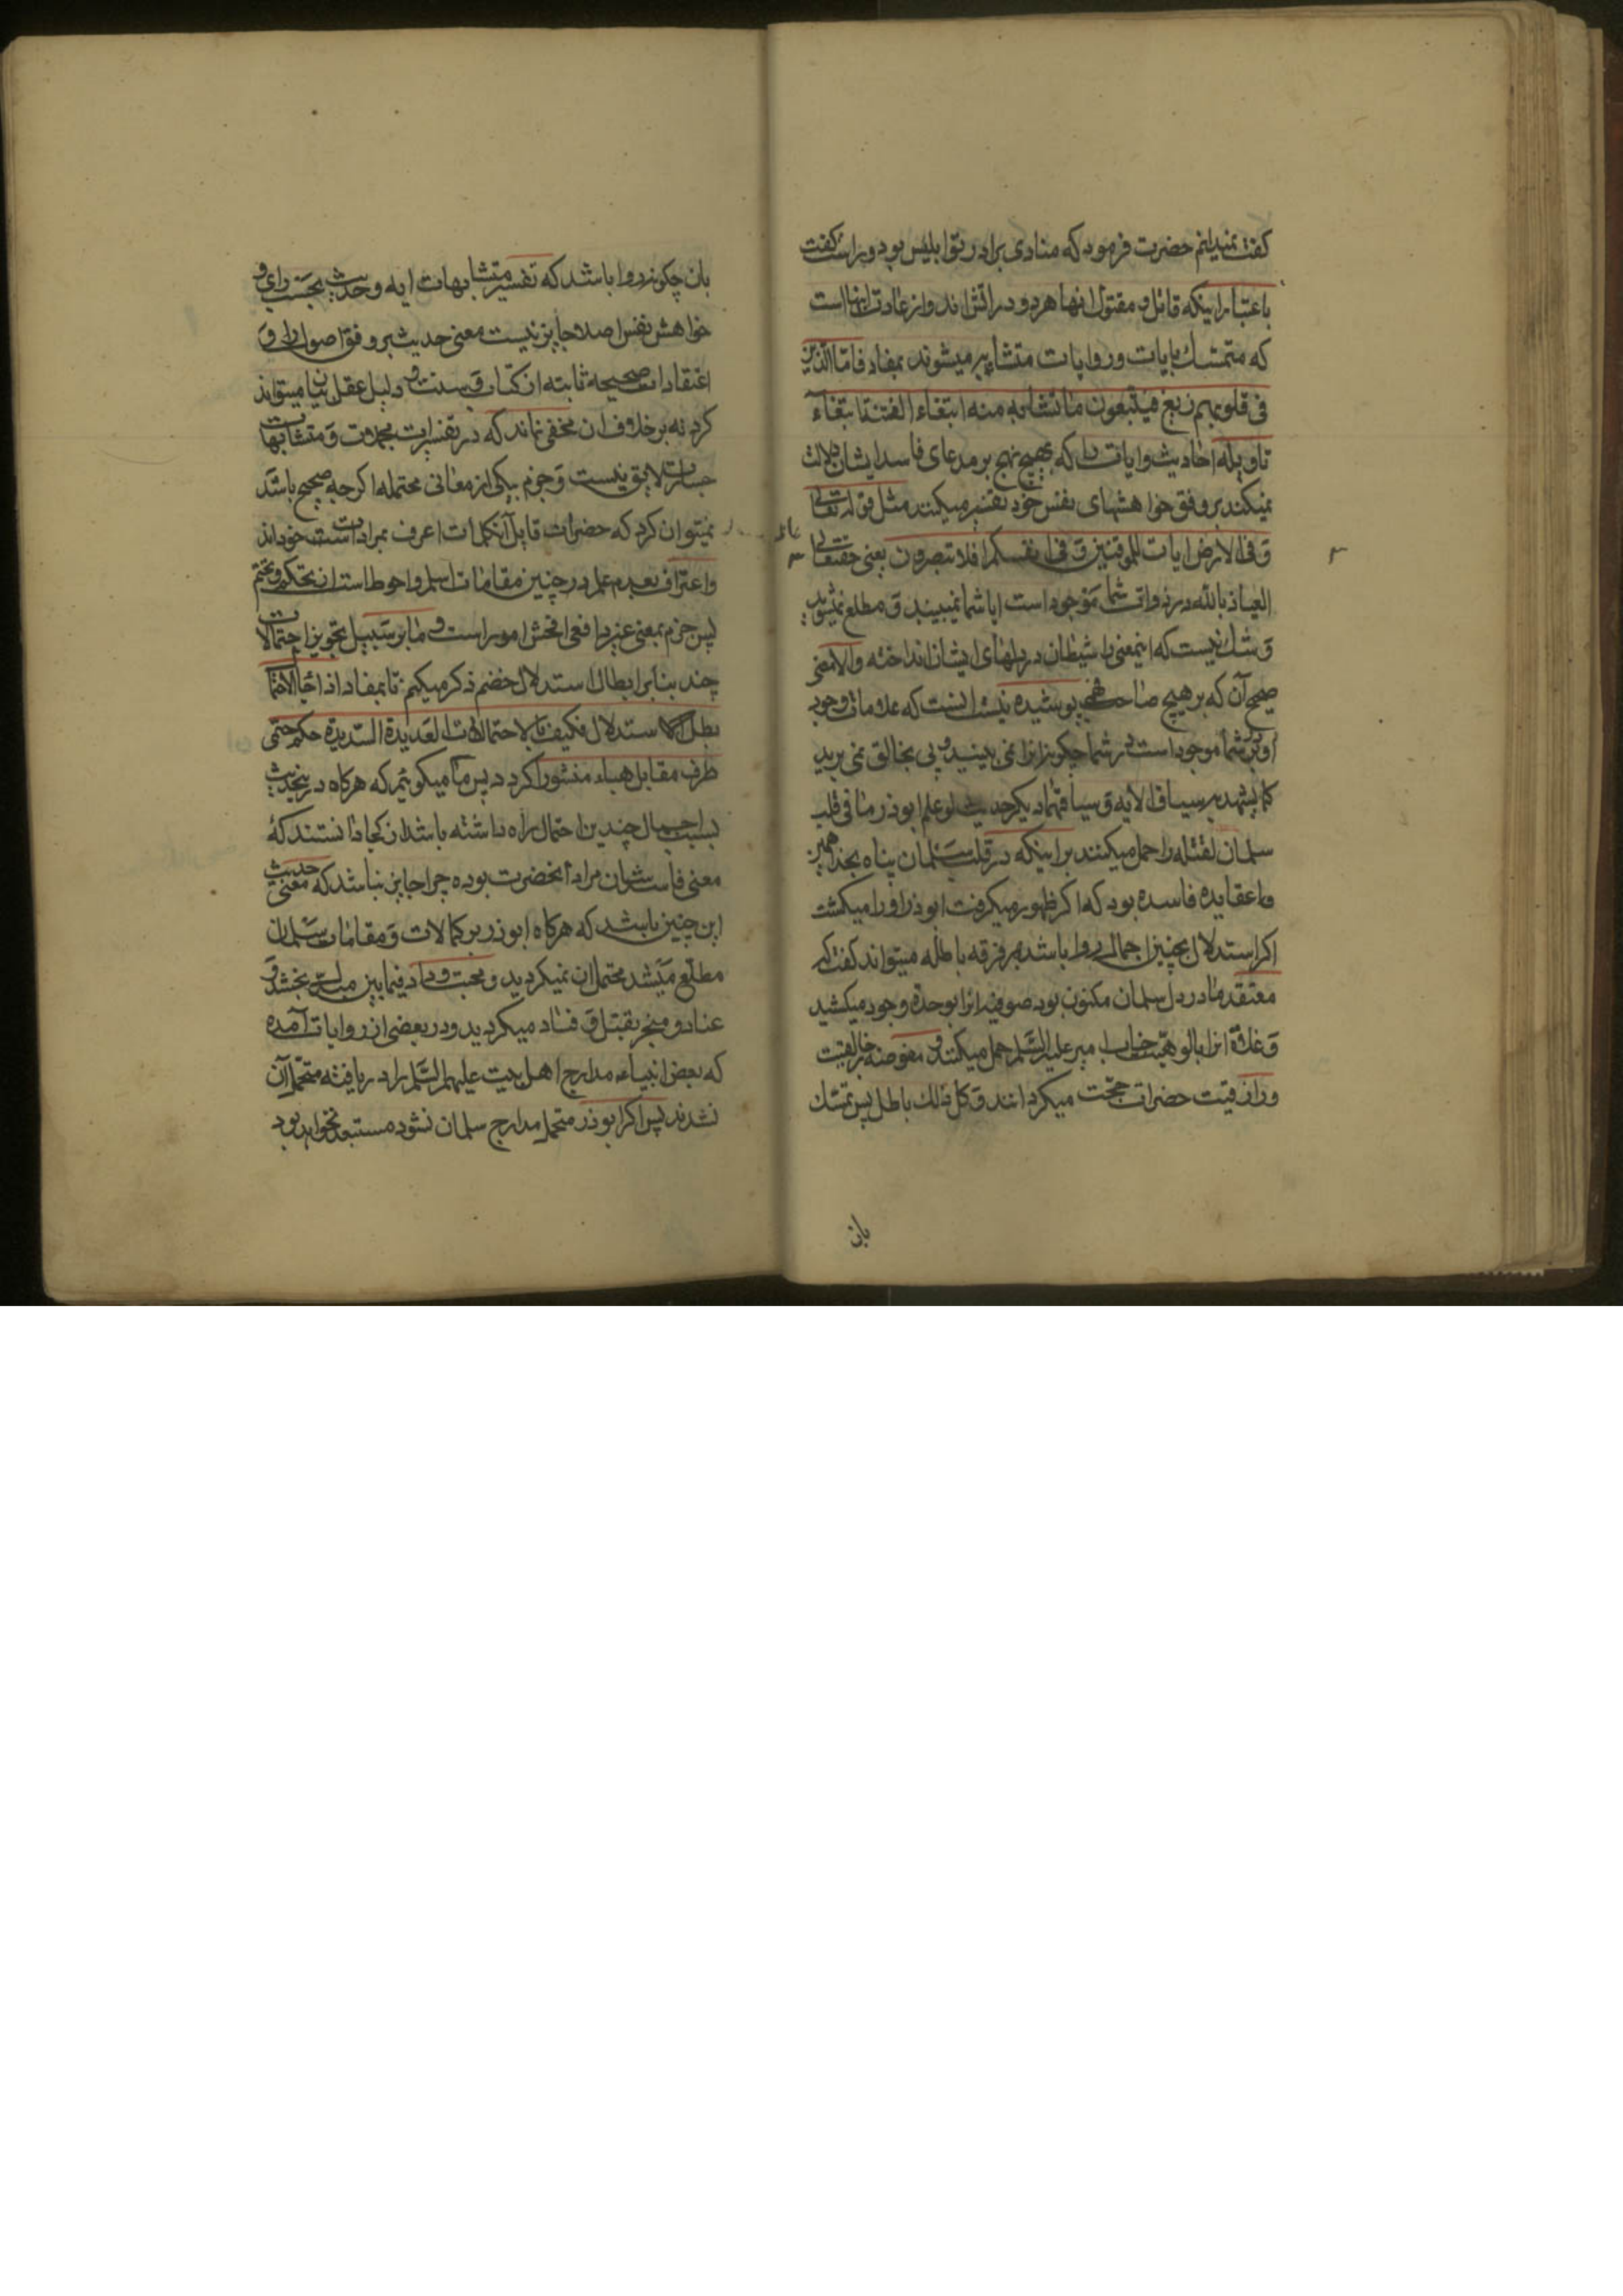 کفت نمیدانم حضرت فرمود که منادی برادر تو ابلیس بود و راست کفت
باعتبار اینکه قاتل و مقتول انها هر دو در اتش اند و از عادت انها است
که متمسک بایات و روایات متشابه میشوند بمفاد فاما الذین
فی قلوبهم زیغ فیتبعون ما تشابه منه ابتغاء الفتنة ابتغاء
تاویله احادیث و ایات را که بهیچ نهج بر مدعای فاسد ایشان دلالت
نمیکند بر وفق خواهشهای نفس خود تفسیر میکنند مثل قوله تعالی
و فی الارض ایات للموقنین و فی انفسکم افلا تبصرون یعنی حقتعالی
العیاذ بالله در ذوات شما موجود است ایا شما نمیبیند و مطلع نمیشوید
و شک نیست که اینمعنی را شیطان در دلهای ایشان انداخته والا معنی
صحیح آن که بر هیچ صاحب پوشیده نیست اینست که علامات وجود
او در شما موجود است در شما چکونه انرا نمی بینید و پی بخالق نمی برید
کما یشهد به سیاق الایه و سیاقها دیکر حدیث لو علم ابوذر ما فی قلب
سلمان لقتله را حمل میکنند بر اینکه در قلب سلمان پناه بخدا همین
عقایده فاسده بود که اکر ظهور میکرفت ابوذر او را میکشت
اکر استدلال بچنین اجمالی روا باشد هر فرقه باطله میتواند کفت که
معتقد ما در دل سلمان مکنون بود صوفیه انرا بوحدة وجود میکشید
و غلاة انرا بالوهیت جناب امیر علیه السلم حمل میکنند و مفوضه خالقیت
و رازقیت حضرات حجت میکردانند و کل ذلک باطل پس تمسک
بان
بان چکونه روا باشد که تفسیر متشابهات ایه و حدیث بحسب رای و
خواهش نفس اصلا جایز نیست معنی حدیث بر وفق اصول و
اعتقادات صحیحه ثابته از کتاب و سنت و دلیل عقل بیان میتواند
کرد نه بر خلاف ان مخفی نماند که در تفسیرات مجملات و متشابهات
جسارت لایق نیست و جزم بیکی از معانی محتمله اکرچه صحیح باشد
نمیتوان کرد که حضرات قایل آنکلمات اعرف بمرادات خوداند
و اعتراف بعدم علم در چنین مقامات اسلم و احوط است از تحکم و تختم
پس جزم بمعنی غیر واقعی افحش امور است و ما بر سبیل تجویز احتمالات
چند بنابر ابطال استدلال خصم ذکر میکنیم تا بمفاد اذا جاء الاحتمال
بطل الاستدلال فکیف بالاحتمالات العدیدة السدیدة حکم حتمی
طرف مقابل هباء منثورا کردد پس ما میکوئیم که هرکاه در اینحدیث
بسبب اجمال چندین احتمال راه داشته باشد از کجا دانستند که
معنی فاسد شان مراد آنحضرت بوده چرا جایز نباشد که معنی حدیث
این چنین باشد که هرکاه ابوذر بر کمالات و مقامات سلمان
مطلع میشد محتمل ان نمیکردید و محبت و داد فیمابین مبدل بخشد و
عناد و منجر بقتل و فساد میکردید و در بعضی از روایات آمده
که بعض انبیاء مدارج اهل بیت علیهم السلم را دریافته متحمل آن
نشدند پس اکر ابوذر متحمل مدارج سلمان نشود مستبعد نخواهد بود